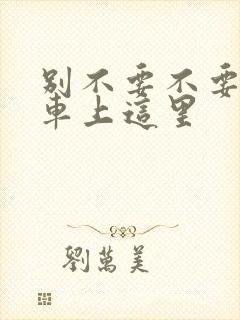 別不要不要
車上這里
劉萬美